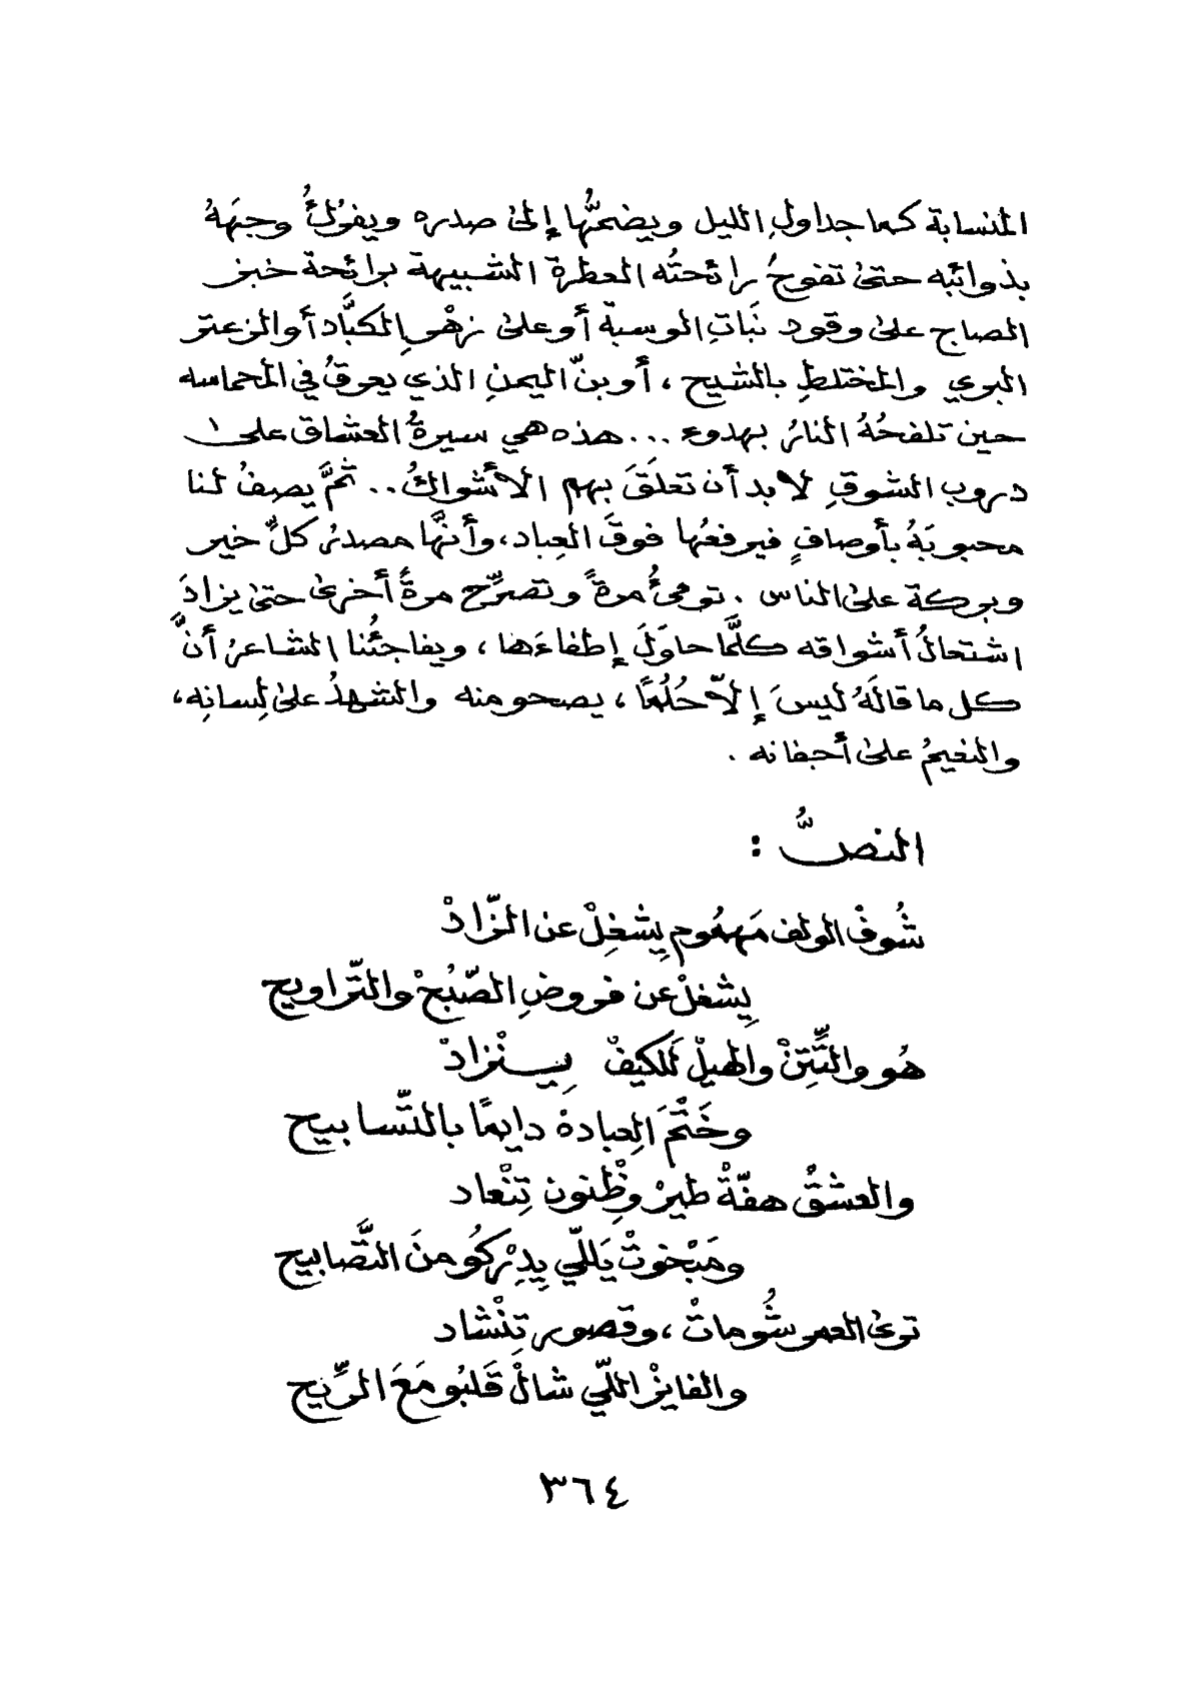 المنسابة كما جداولِ الليل ويضمُّها إلىٰ صدره ويفرُكُ وجهَهُ
بذوائبه حتىٰ تفوحُ رائحتُه العطرة الشبيهة برائحة خبز
الصاج علىٰ وقود نَباتِ الوسبة أو علىٰ زهْرِ الكبَّاد أو الزعتر
البري والمختلطِ بالشيح ، أو بنّ اليمنِ الذي يعرقُ في المحماسه
حين تلفحُهُ النارُ بهدوء ... هذه هي سيرةُ العشاق علىٰ
دروب الشوقِ لا بد أن تعلَقَ بهم الأشواكُ .. ثمَّ يصفُ لنا
محبوبَهُ بأوصافٍ فيرفعُها فوقَ العِباد ، وأنهَّا مصدرُ كلِّ خير
وبركة علىٰ الناس . تومئُ مرةً وتصرِّح مرةً أخرىٰ حتىٰ يزدادَ
اشتعالُ أشواقه كلَّما حاوَلَ إطفاءَها ، ويفاجئُنا الشاعرُ أنَّ
كل ما قالَهُ ليسَ إلاّ حُلُماً ، يصحو منه والشهدُ علىٰ لِسانِه ،
والغيمُ علىٰ أجفانه .
النصُّ :
شُوفْ الولف مَهمُوم يِشغِلْ عن الزّادْ
يِشغلْ عن فروضِ الصّبُحْ والتّراويح
هُو والتِّتِنْ والهيلْ لَلكيفْ يِسـنْزادْ
وخَتْمَ العِبادهْ دايمًا بالتّسابيح
والعشقْ هفّةْ طيرْ وظْنون تِنْعاد
ومَبْخوتْ يَاللّي يِدِرْكُو منَ التَّصابيح
ترىٰ العمر شُوماتْ ، وقصور تِنْشاد
والفايزْ اللّي شالْ قَلبُو مَعَ الرِّيح
٣٦٤